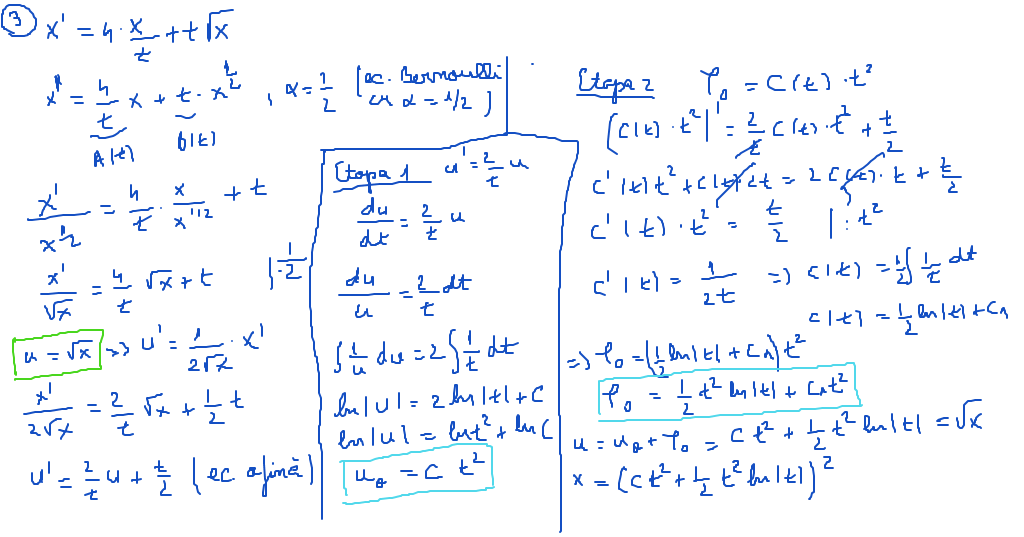 ③ x' = 4 · x/t + t√x
x' = 4/t x + t · x^(1/2) , α = 1/2 (ec. Bernoulli
cu α = 1/2)
A(t) b(t)
x'/x^(1/2) = 4/t · x/x^(1/2) + t
x'/√x = 4/t √x + t | · 1/2
u = √x => u' = 1/(2√x) · x'
x'/(2√x) = 2/t √x + 1/2 t
u' = 2/t u + t/2 (ec afină)
Etapa 1 u' = 2/t u
du/dt = 2/t u
du/u = 2/t dt
∫ 1/u du = 2 ∫ 1/t dt
ln|u| = 2 ln|t| + C
ln|u| = ln t² + ln C
u₀ = C t²
Etapa 2 φ₀ = C(t) · t²
(C(t) · t²)' = 2/t C(t) · t² + t/2
C'(t) t² + C(t) · 2t = 2 C(t) · t + t/2
C'(t) · t² = t/2 | : t²
C'(t) = 1/(2t) => C(t) = 1/2 ∫ 1/t dt
C(t) = 1/2 ln|t| + C₁
=> φ₀ = (1/2 ln|t| + C₁) t²
φ₀ = 1/2 t² ln|t| + C₁t²
u = u₀ + φ₀ = C t² + 1/2 t² ln|t| = √x
x = (C t² + 1/2 t² ln|t|)²